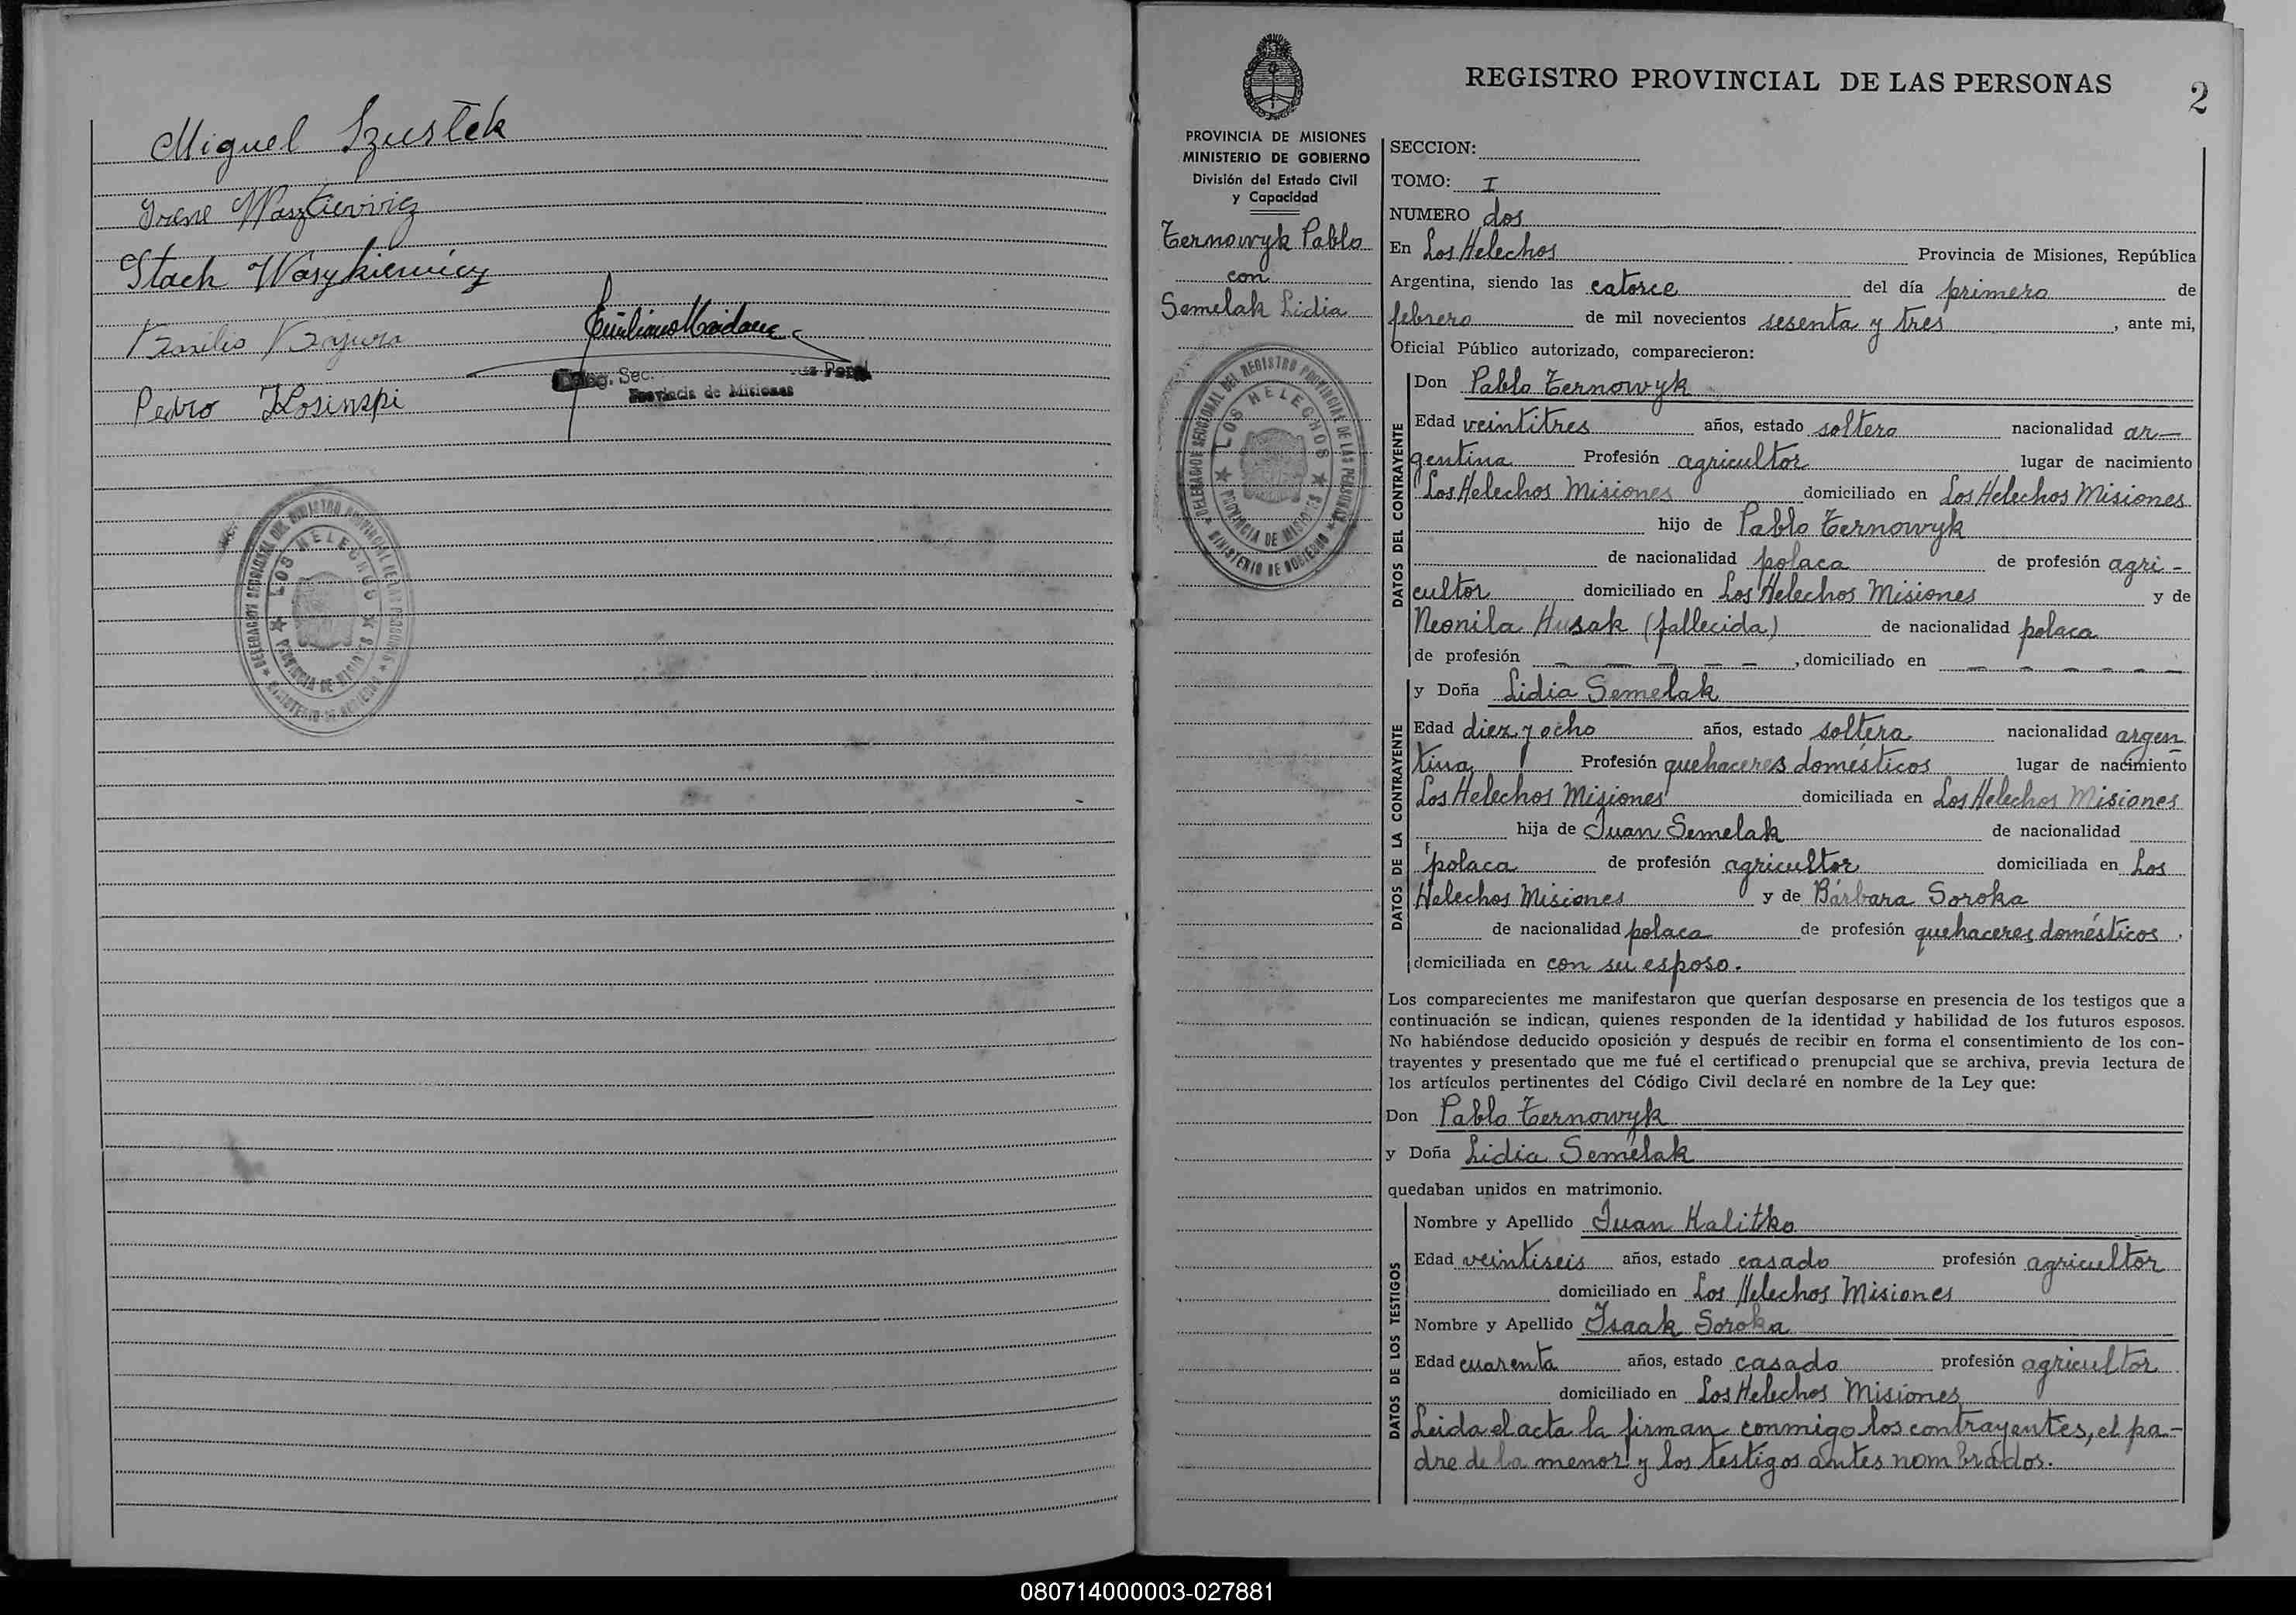 Miguel Szustek
Irene Waszkiewicz
Stach Wasykiewicz
Basilio
Pedro Kosinski
Deleg. Sec.
Provincia de Misiones
DELEGACION SECCIONAL DEL REGISTRO PROVINCIAL DE LAS PERSONAS
MINISTERIO DE GOBIERNO
LOS HELECHOS
PROVINCIA DE MISIONES
REGISTRO PROVINCIAL DE LAS PERSONAS
2
PROVINCIA DE MISIONES
MINISTERIO DE GOBIERNO
División del Estado Civil
y Capacidad
Ternowyk Pablo
con
Semelak Lidia
DELEGACION SECCIONAL DEL REGISTRO PROVINCIAL DE LAS PERSONAS
MINISTERIO DE GOBIERNO
LOS HELECHOS
PROVINCIA DE MISIONES
SECCION:
TOMO: I
NUMERO dos
En Los Helechos Provincia de Misiones, República
Argentina, siendo las catorce del día primero de
febrero de mil novecientos sesenta y tres, ante mi,
Oficial Público autorizado, comparecieron:
DATOS DEL CONTRAYENTE
Don Pablo Ternowyk
Edad veintitres años, estado soltero nacionalidad ar-
gentina Profesión agricultor lugar de nacimiento
Los Helechos Misiones domiciliado en Los Helechos Misiones
hijo de Pablo Ternowyk
de nacionalidad polaca de profesión agri-
cultor domiciliado en Los Helechos Misiones y de
Neonila Husak (fallecida) de nacionalidad polaca
de profesión — — — — —, domiciliado en — — — — — —
DATOS DE LA CONTRAYENTE
y Doña Lidia Semelak
Edad diez y ocho años, estado soltera nacionalidad argen
tina Profesión quehaceres domésticos lugar de nacimiento
Los Helechos Misiones domiciliada en Los Helechos Misiones
hija de Juan Semelak de nacionalidad
polaca de profesión agricultor domiciliada en Los
Helechos Misiones y de Bárbara Soroka
de nacionalidad polaca de profesión quehaceres domésticos,
domiciliada en con su esposo.
Los comparecientes me manifestaron que querían desposarse en presencia de los testigos que a
continuación se indican, quienes responden de la identidad y habilidad de los futuros esposos.
No habiéndose deducido oposición y después de recibir en forma el consentimiento de los con-
trayentes y presentado que me fué el certificado prenupcial que se archiva, previa lectura de
los artículos pertinentes del Código Civil declaré en nombre de la Ley que:
Don Pablo Ternowyk
y Doña Lidia Semelak
quedaban unidos en matrimonio.
DATOS DE LOS TESTIGOS
Nombre y Apellido Juan Kalitko
Edad veintiseis años, estado casado profesión agricultor
domiciliado en Los Helechos Misiones
Nombre y Apellido Isaak Soroka
Edad cuarenta años, estado casado profesión agricultor
domiciliado en Los Helechos Misiones
Leida el acta la firman conmigo los contrayentes, el pa-
dre de la menor y los testigos antes nombrados.
080714000003-027881